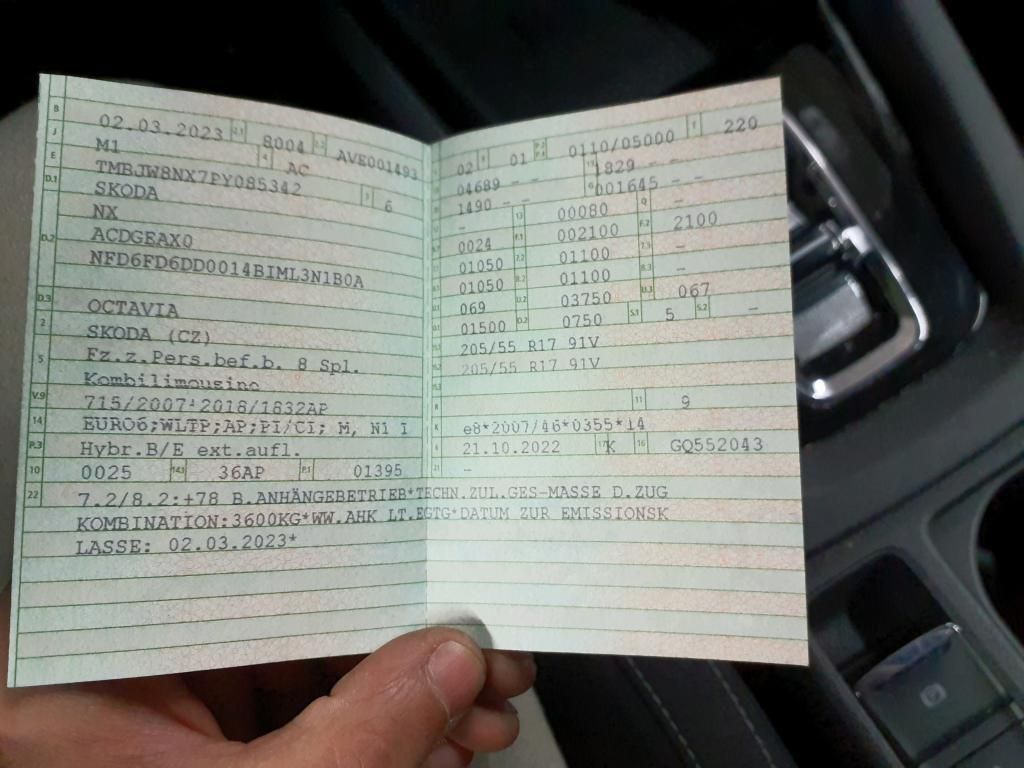 B 02.03.2023 2.1 8004 2.2 AVE001493
J M1 4 AC
E TMBJW8NX7PY085342 3 6
D.1 SKODA
NX
D.2 ACDGEAX0
NFD6FD6DD0014BIML3N1B0A
D.3 OCTAVIA
2 SKODA (CZ)
5 Fz.z.Pers.bef.b. 8 Spl.
Kombilimousine
V.9 715/2007*2018/1832AP
14 EURO6;WLTP;AP;PI/CI; M, N1 I
P.3 Hybr.B/E ext.aufl.
10 0025 14.1 36AP P.1 01395
22 7.2/8.2:+78 B.ANHÄNGEBETRIEB*TECHN.ZUL.GES-MASSE D.ZUG
KOMBINATION:3600KG*WW.AHK LT.EGTG*DATUM ZUR EMISSIONSK
LASSE: 02.03.2023*
02 9 01 P.2 P.4 0110/05000 T 220
04689 - - 1829 - -
1490 - - 001645 - -
- 13 00080 Q -
0024 F.1 002100 F.2 2100
01050 7.2 01100 7.3 -
01050 8.2 01100 8.3 -
069 U.2 03750 U.3 067
01500 O.2 0750 S.1 5 S.2 -
205/55 R17 91V
205/55 R17 91V
R 11 9
K e8*2007/46*0355*14
6 21.10.2022 17 K 16 GQ552043
21 -